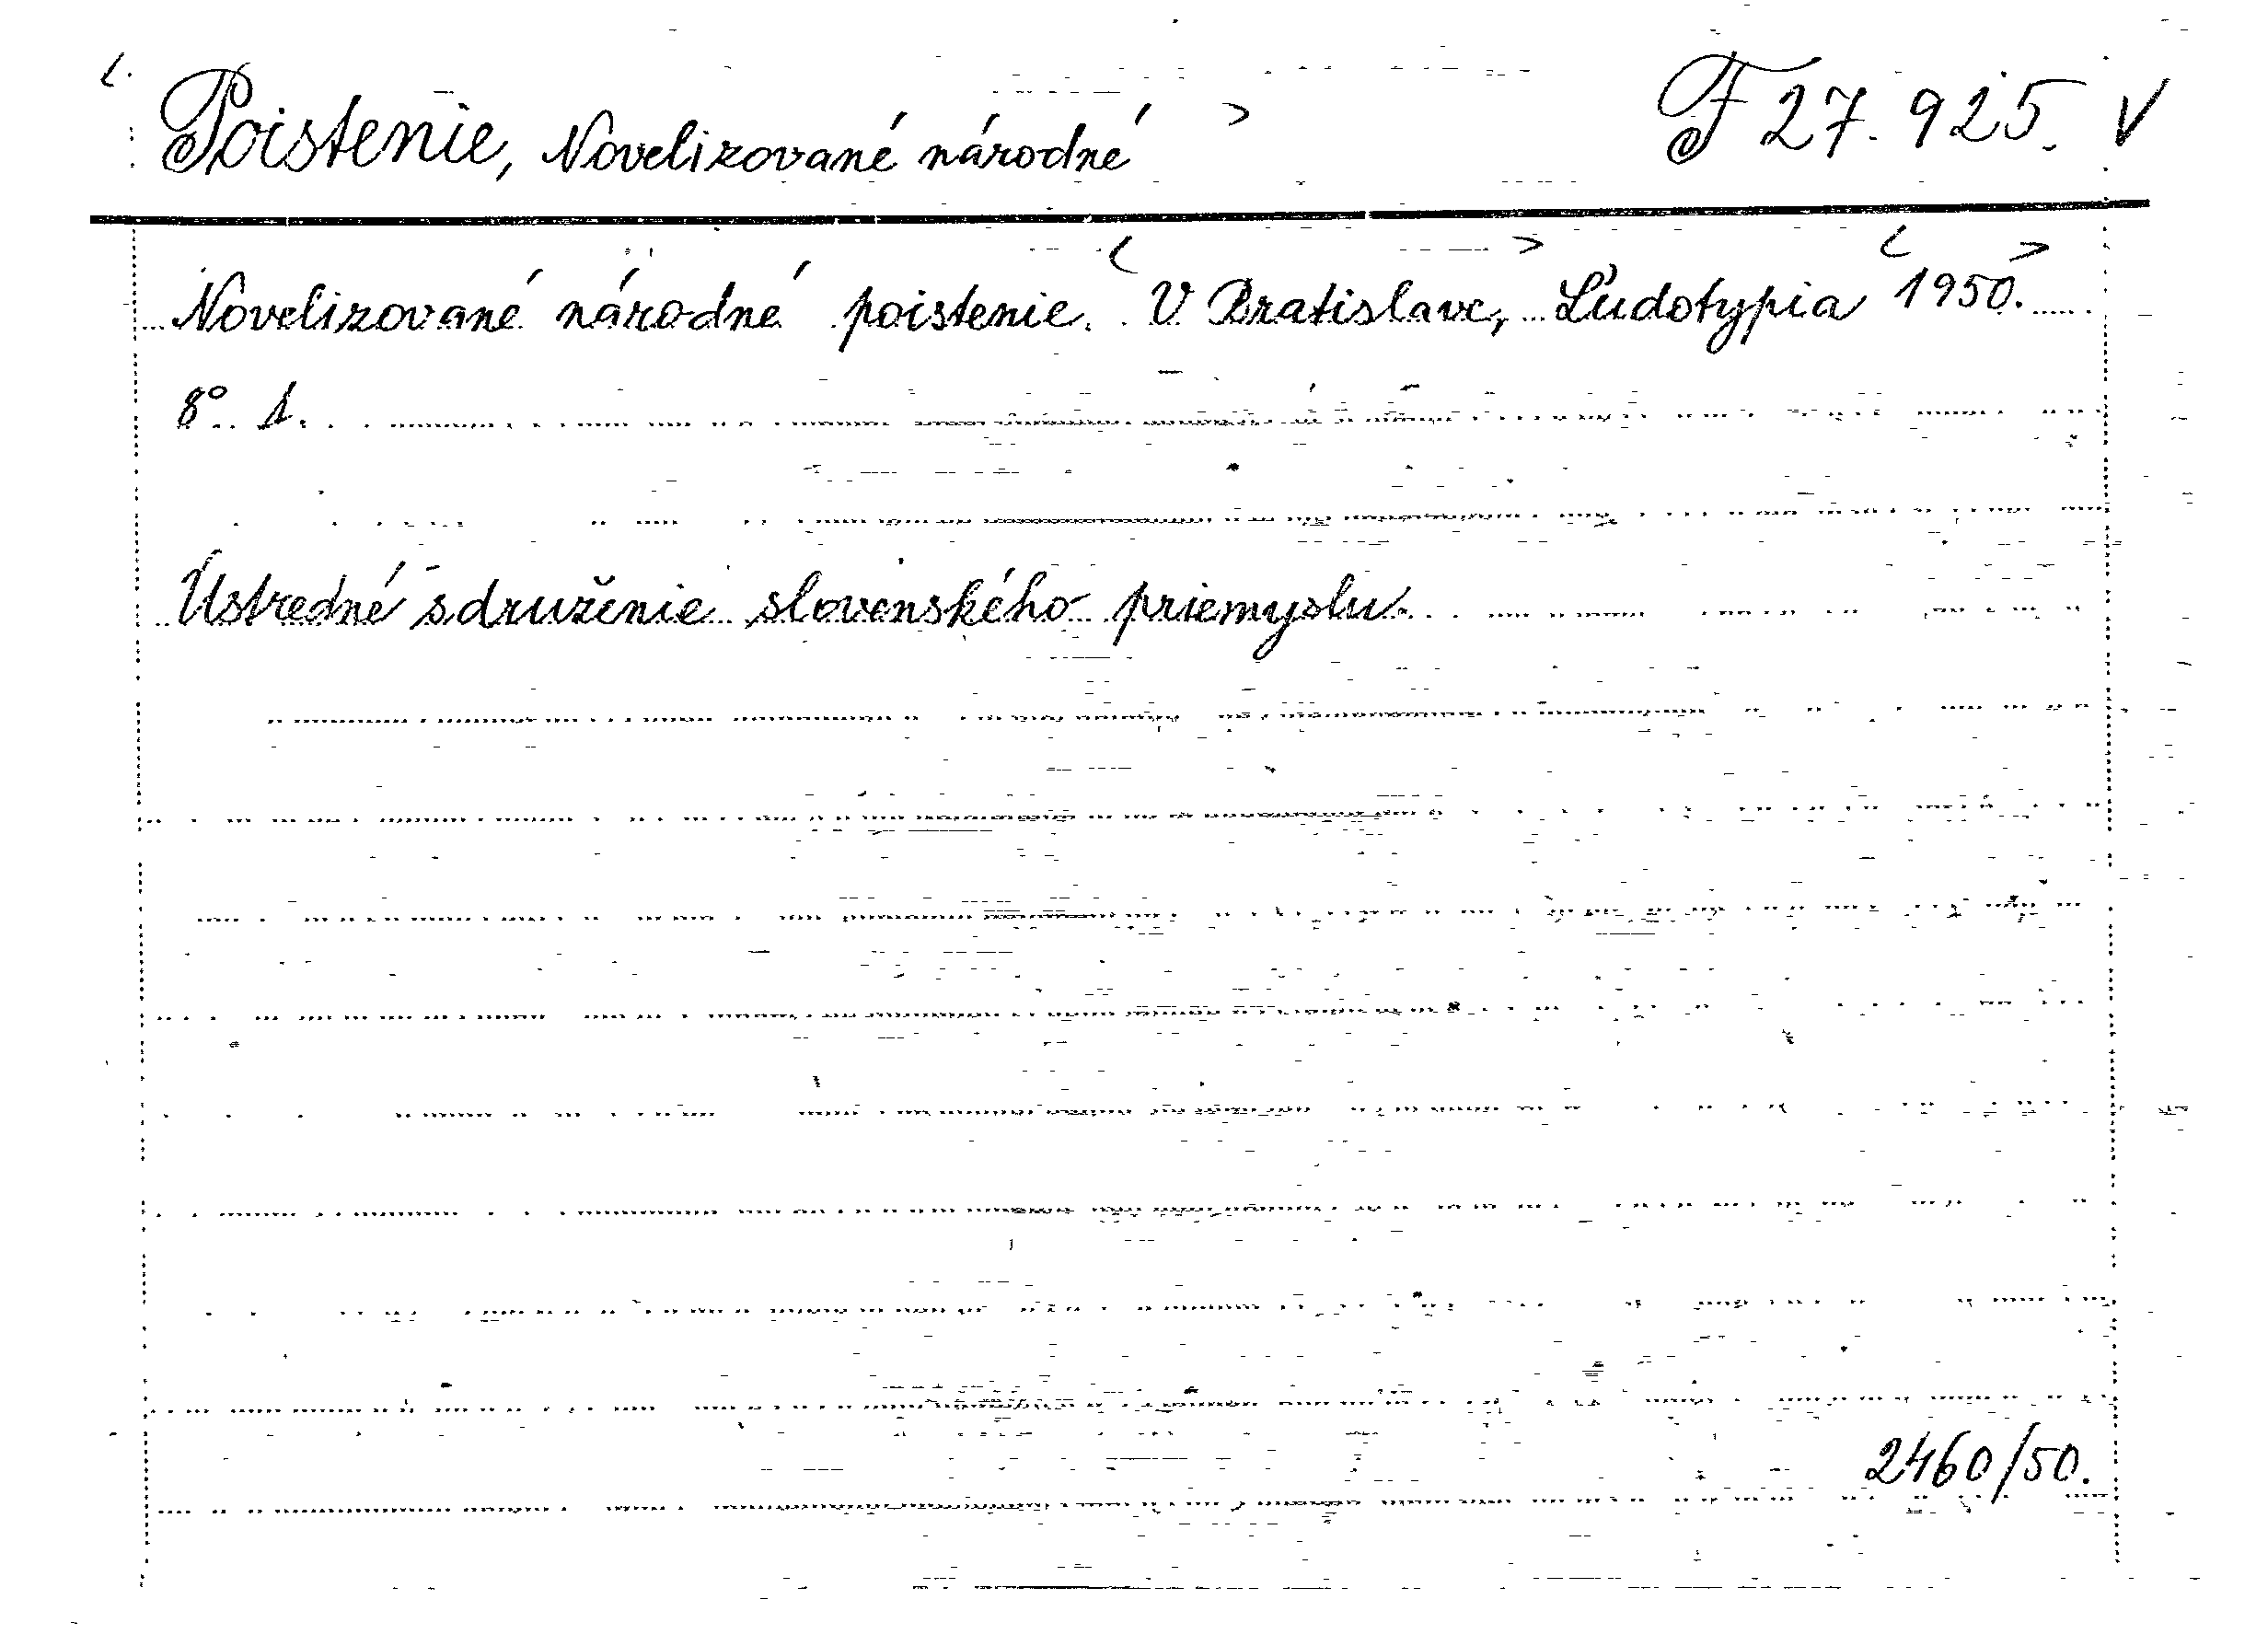 < Poistenie, Novelizované národné > F 27.925. V
Novelizované národné poistenie. < V Bratislave, > Ľudotypia < 1950. >
8° s.
Ústredné sdruženie slovenského priemyslu.
2460/50.